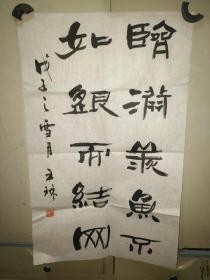 臨渊羨魚不
如退而結网
戊子之雪月 玉琳